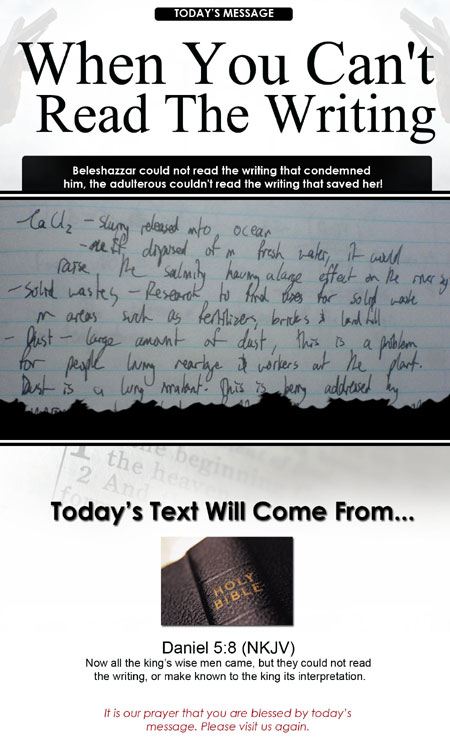 TODAY'S MESSAGE
When You Can't
Read The Writing
Beleshazzar could not read the writing that condemned
him, the adulterous couldn't read the writing that saved her!
CaCl2 – slurry released into ocean
- if disposed of in fresh water, it would
raise the salinity having a large effect on the river
- Solid wastes – Research to find uses for solid waste
in areas such as fertilizers, bricks & landfill
- Dust – large amount of dust, this is a problem
for people living nearbye & workers at the plant.
Dust is a lung irritant. This is being addressed by
1 the beginning
the heave
2 And
for
Today's Text Will Come From...
HOLY
BIBLE
Daniel 5:8 (NKJV)
Now all the king's wise men came, but they could not read
the writing, or make known to the king its interpretation.
It is our prayer that you are blessed by today's
message. Please visit us again.